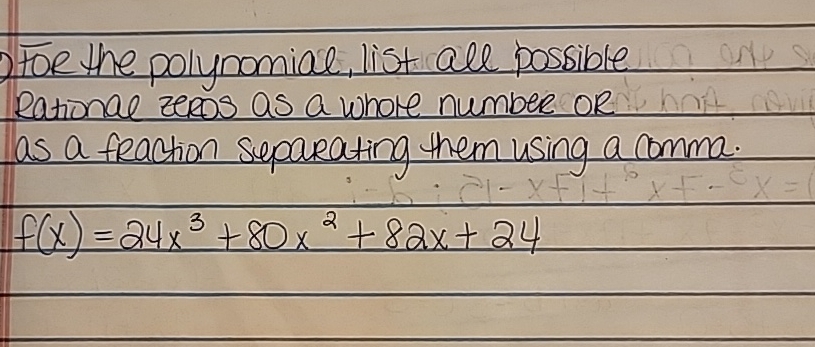 ) For the polynomial, list all possible
Rational zeros as a whole number OR
as a fraction separating them using a comma.
f(x) = 24x³ + 80x² + 82x + 24